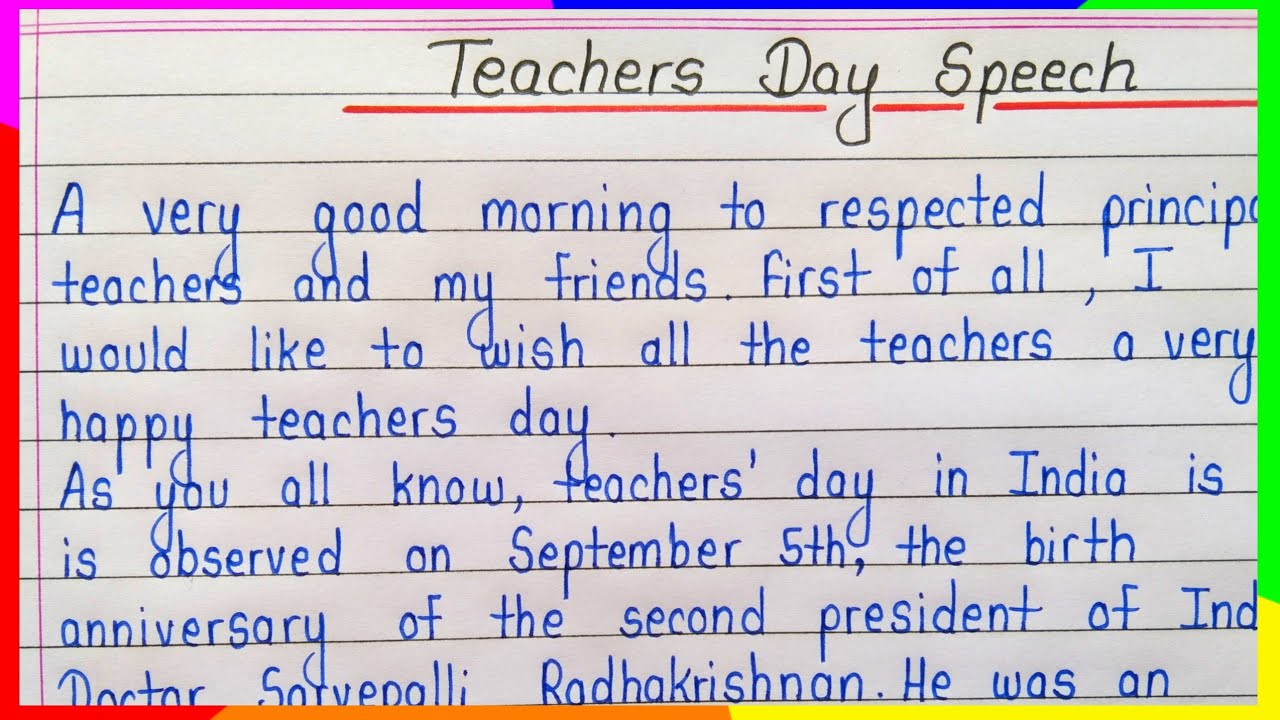 Teachers Day Speech
A very good morning to respected principa
teachers and my friends. first of all, I
would like to wish all the teachers a very
happy teachers day.
As you all know, teachers' day in India is
is observed on September 5th, the birth
anniversary of the second president of Ind
Doctor Sarvepalli Radhakrishnan. He was an